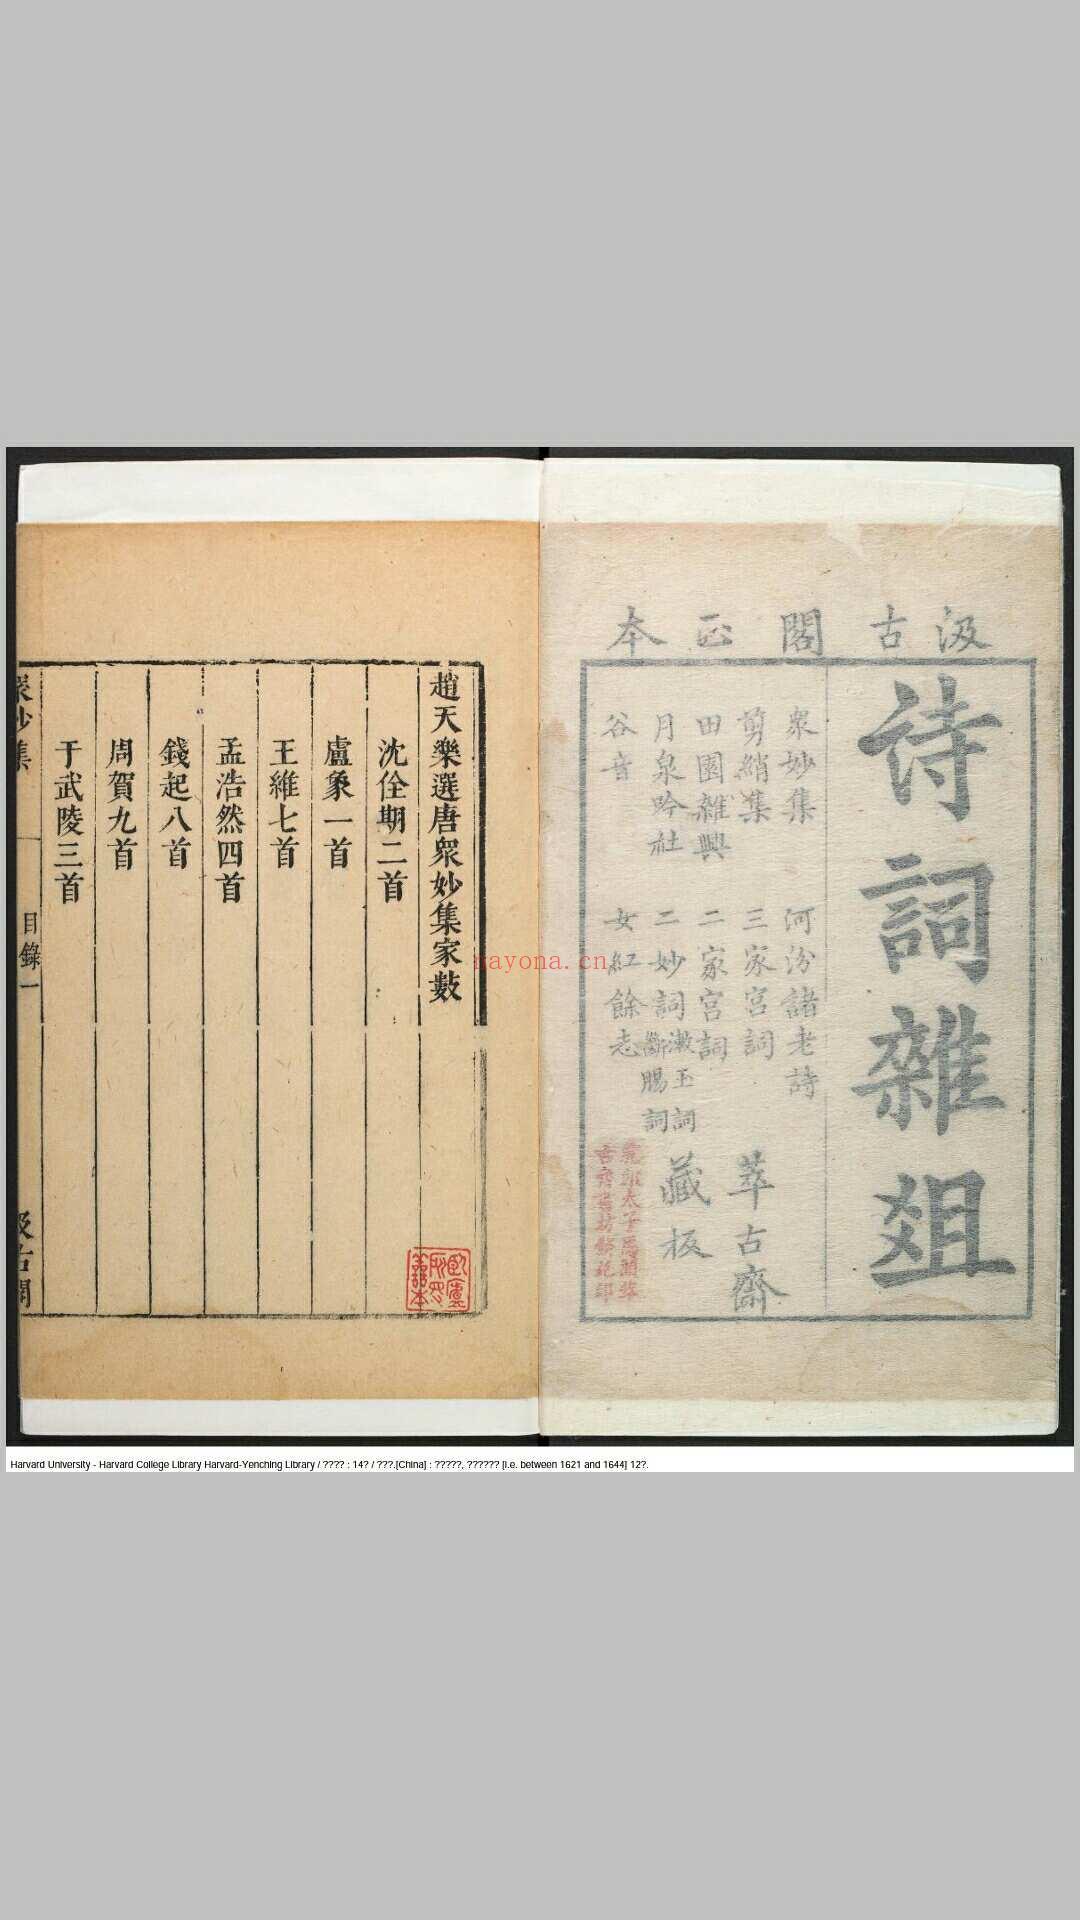 汲古閣正本
詩詞雜俎
衆妙集 河汾諸老詩
剪綃集 三家宮詞
田園雜興 二家宮詞
月泉吟社 二妙詞 漱玉詞 斷腸詞
谷音 女紅餘志
萃古齋
藏板
趙天樂選唐衆妙集家數
沈佺期二首
盧象一首
王維七首
孟浩然四首
錢起八首
周賀九首
于武陵三首
衆妙集 目錄一 汲古閣
nayona.cn
Harvard University - Harvard College Library Harvard-Yenching Library / ???? : 14? / ???.[China] : ?????, ?????? [i.e. between 1621 and 1644] 12?.